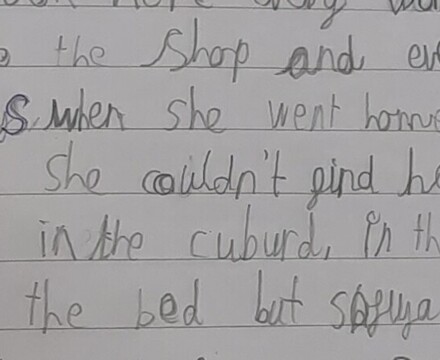 the Shop and
s. when she went home
She couldn't gind
in the cuburd, in th
the bed but